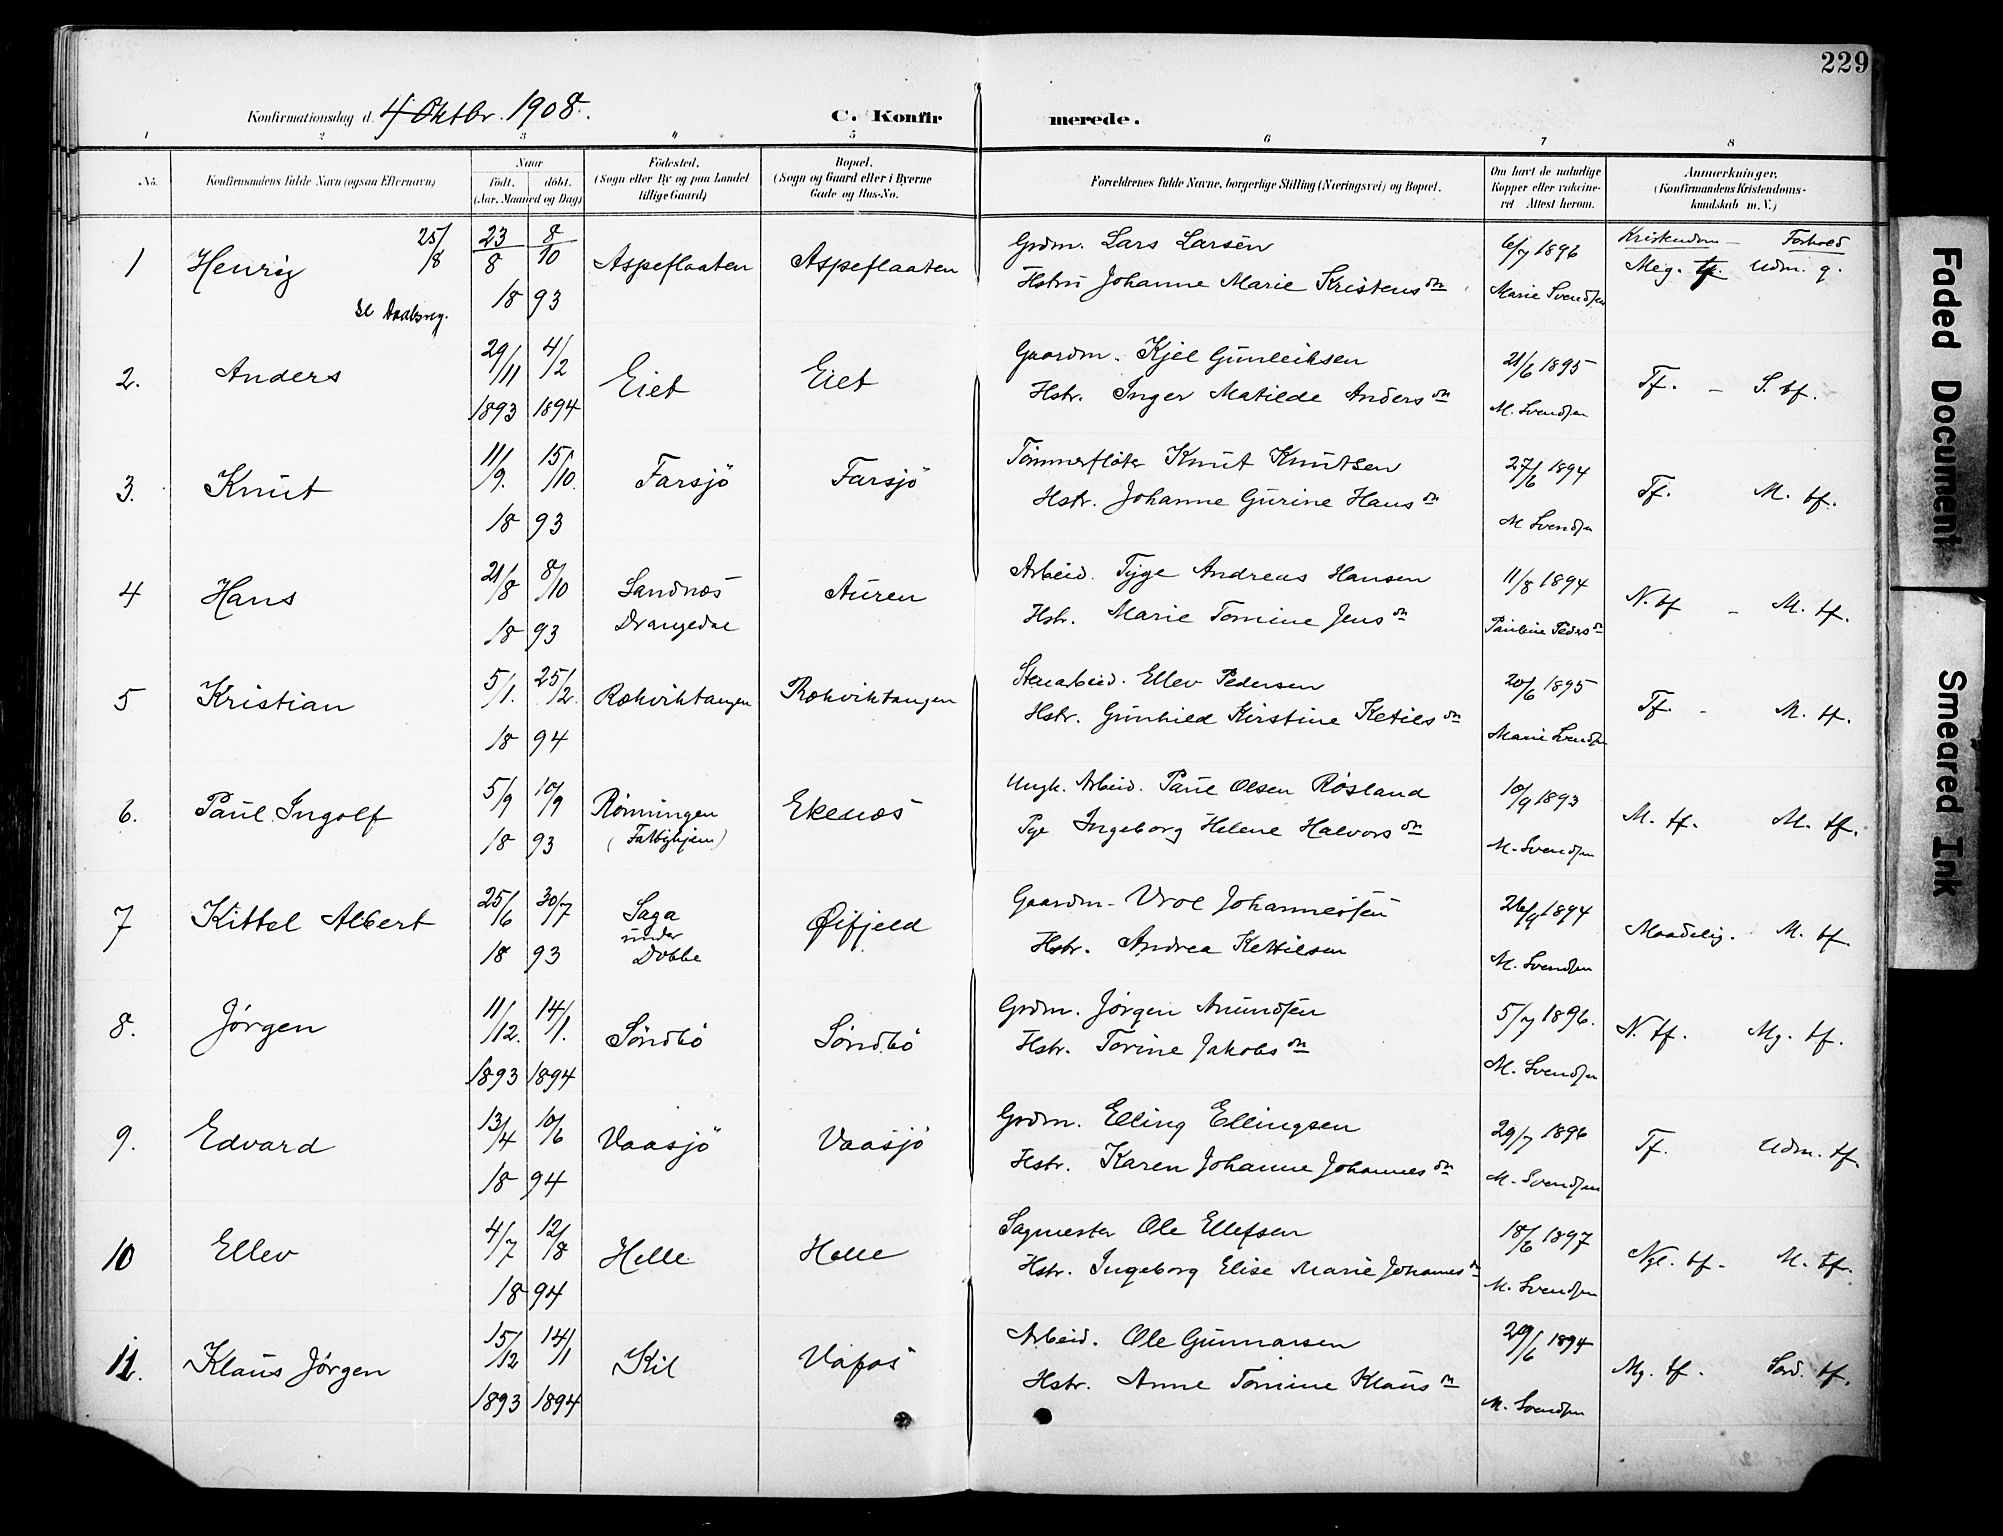 229
Konfirmationsdag d. 4 Oktbr. 1908.
C. Konfirmerede.
1 2 3 4 5 6 7 8
No. Konfirmandens fulde Navn (ogsaa Efternavn) Naar Födested. Bopæl. Forældrenes fulde Navne, borgerlige Stilling (Næringsvei) og Bopæl. Om havt de naturlige Anmærkninger.
födt. döbt. (Sogn eller By og paa Landet (Sogn og Gaard eller i Byerne Kopper eller vakcine- (Konfirmandens Kristendoms-
(Aar, Maaned og Dag) tillige Gaard) Gade og Hus-No. ret Attest herom. kundskab m. V.)
Kristendom - Forhold
1 Henrig 25/8 23/8 8/10 Aspeflaaten Aspeflaaten Grdm. Lars Larsen 6/7 1896 Meg. tf. Udm. g.
se Daabsreg. 18 93 Hstru Johanne Marie Kristensdn Marie Svendsen
2. Anders 29/11 4/2 Eiet Eiet Gaardm. Kjel Gunleiksen 21/6 1895 Tf. - S. tf.
1893 1894 Hstr. Inger Matilde Andersdn M. Svendsen
3. Knut 11/9. 15/10. Farsjö Farsjö Tömmerflöter Knut Knutsen 27/6 1894 Tf. M. tf.
18 93 Hstr. Johanne Gurine Hansdn M Svendsen
4 Hans 21/8 8/10 Sandnæs Auren Arbeid. Tyge Andreas Hansen 11/8 1894 N. tf - M. tf.
18 93 Drangedal Hstr. Marie Tomine Jensdn Pauline Pedersdn
5 Kristian 5/1. 25/2. Rækviktangen Rækviktangen Stenarbeid. Ellev Pedersen 20/6 1895 Tf. - M. tf.
18 94 Hstr. Gunhild Kirstine Ketilsdn Marie Svendsen
6. Paul Ingolf 5/9 10/9 Rønningen Ekenæs Ungk. Arbeid. Paul Olsen Røsland 10/9 1893 M. tf. M. tf.
18 93 (Fattighjem) Pge Ingeborg Helene Halvorsdn M. Svendsen
7 Kittel Albert 25/6 30/7 Saga Øifjeld Gaardm. Vrol Johannessen 26/9 1894 Maadelig. M. tf.
18 93 under Dobbe Hstr. Andrea Kettilsen M. Svendsen
8. Jørgen 11/12. 14/1. Söndbö Söndbö Grdm. Jørgen Anundsen 5/7 1896. N. tf. Mg. tf.
1893 1894 Hstr. Torine Jakobsdn M. Svendsen
9. Edvard 13/4 10/6 Vaasjö Vaasjö Grdm. Elling Ellingsen 29/7 1896 Tf. Udm. tf.
18 94 Hstr. Karen Johanne Johannesdn M. Svendsen
10 Ellev 4/7 12/8 Helle Helle Sagmester Ole Ellefsen 18/6 1897 Ngl. tf. M. tf.
18 94 Hstr. Ingeborg Elise Marie Johannesdn M. Svendsen
11. Klaus Jørgen 15/12 14/1 Kil Vafos Arbeid. Ole Gunnarsen 29/6 1894 Mg. tf. Särd. tf.
1893 1894 Hstr. Anne Tomine Klausdn M. Svendsen
Faded Document
Smeared Ink